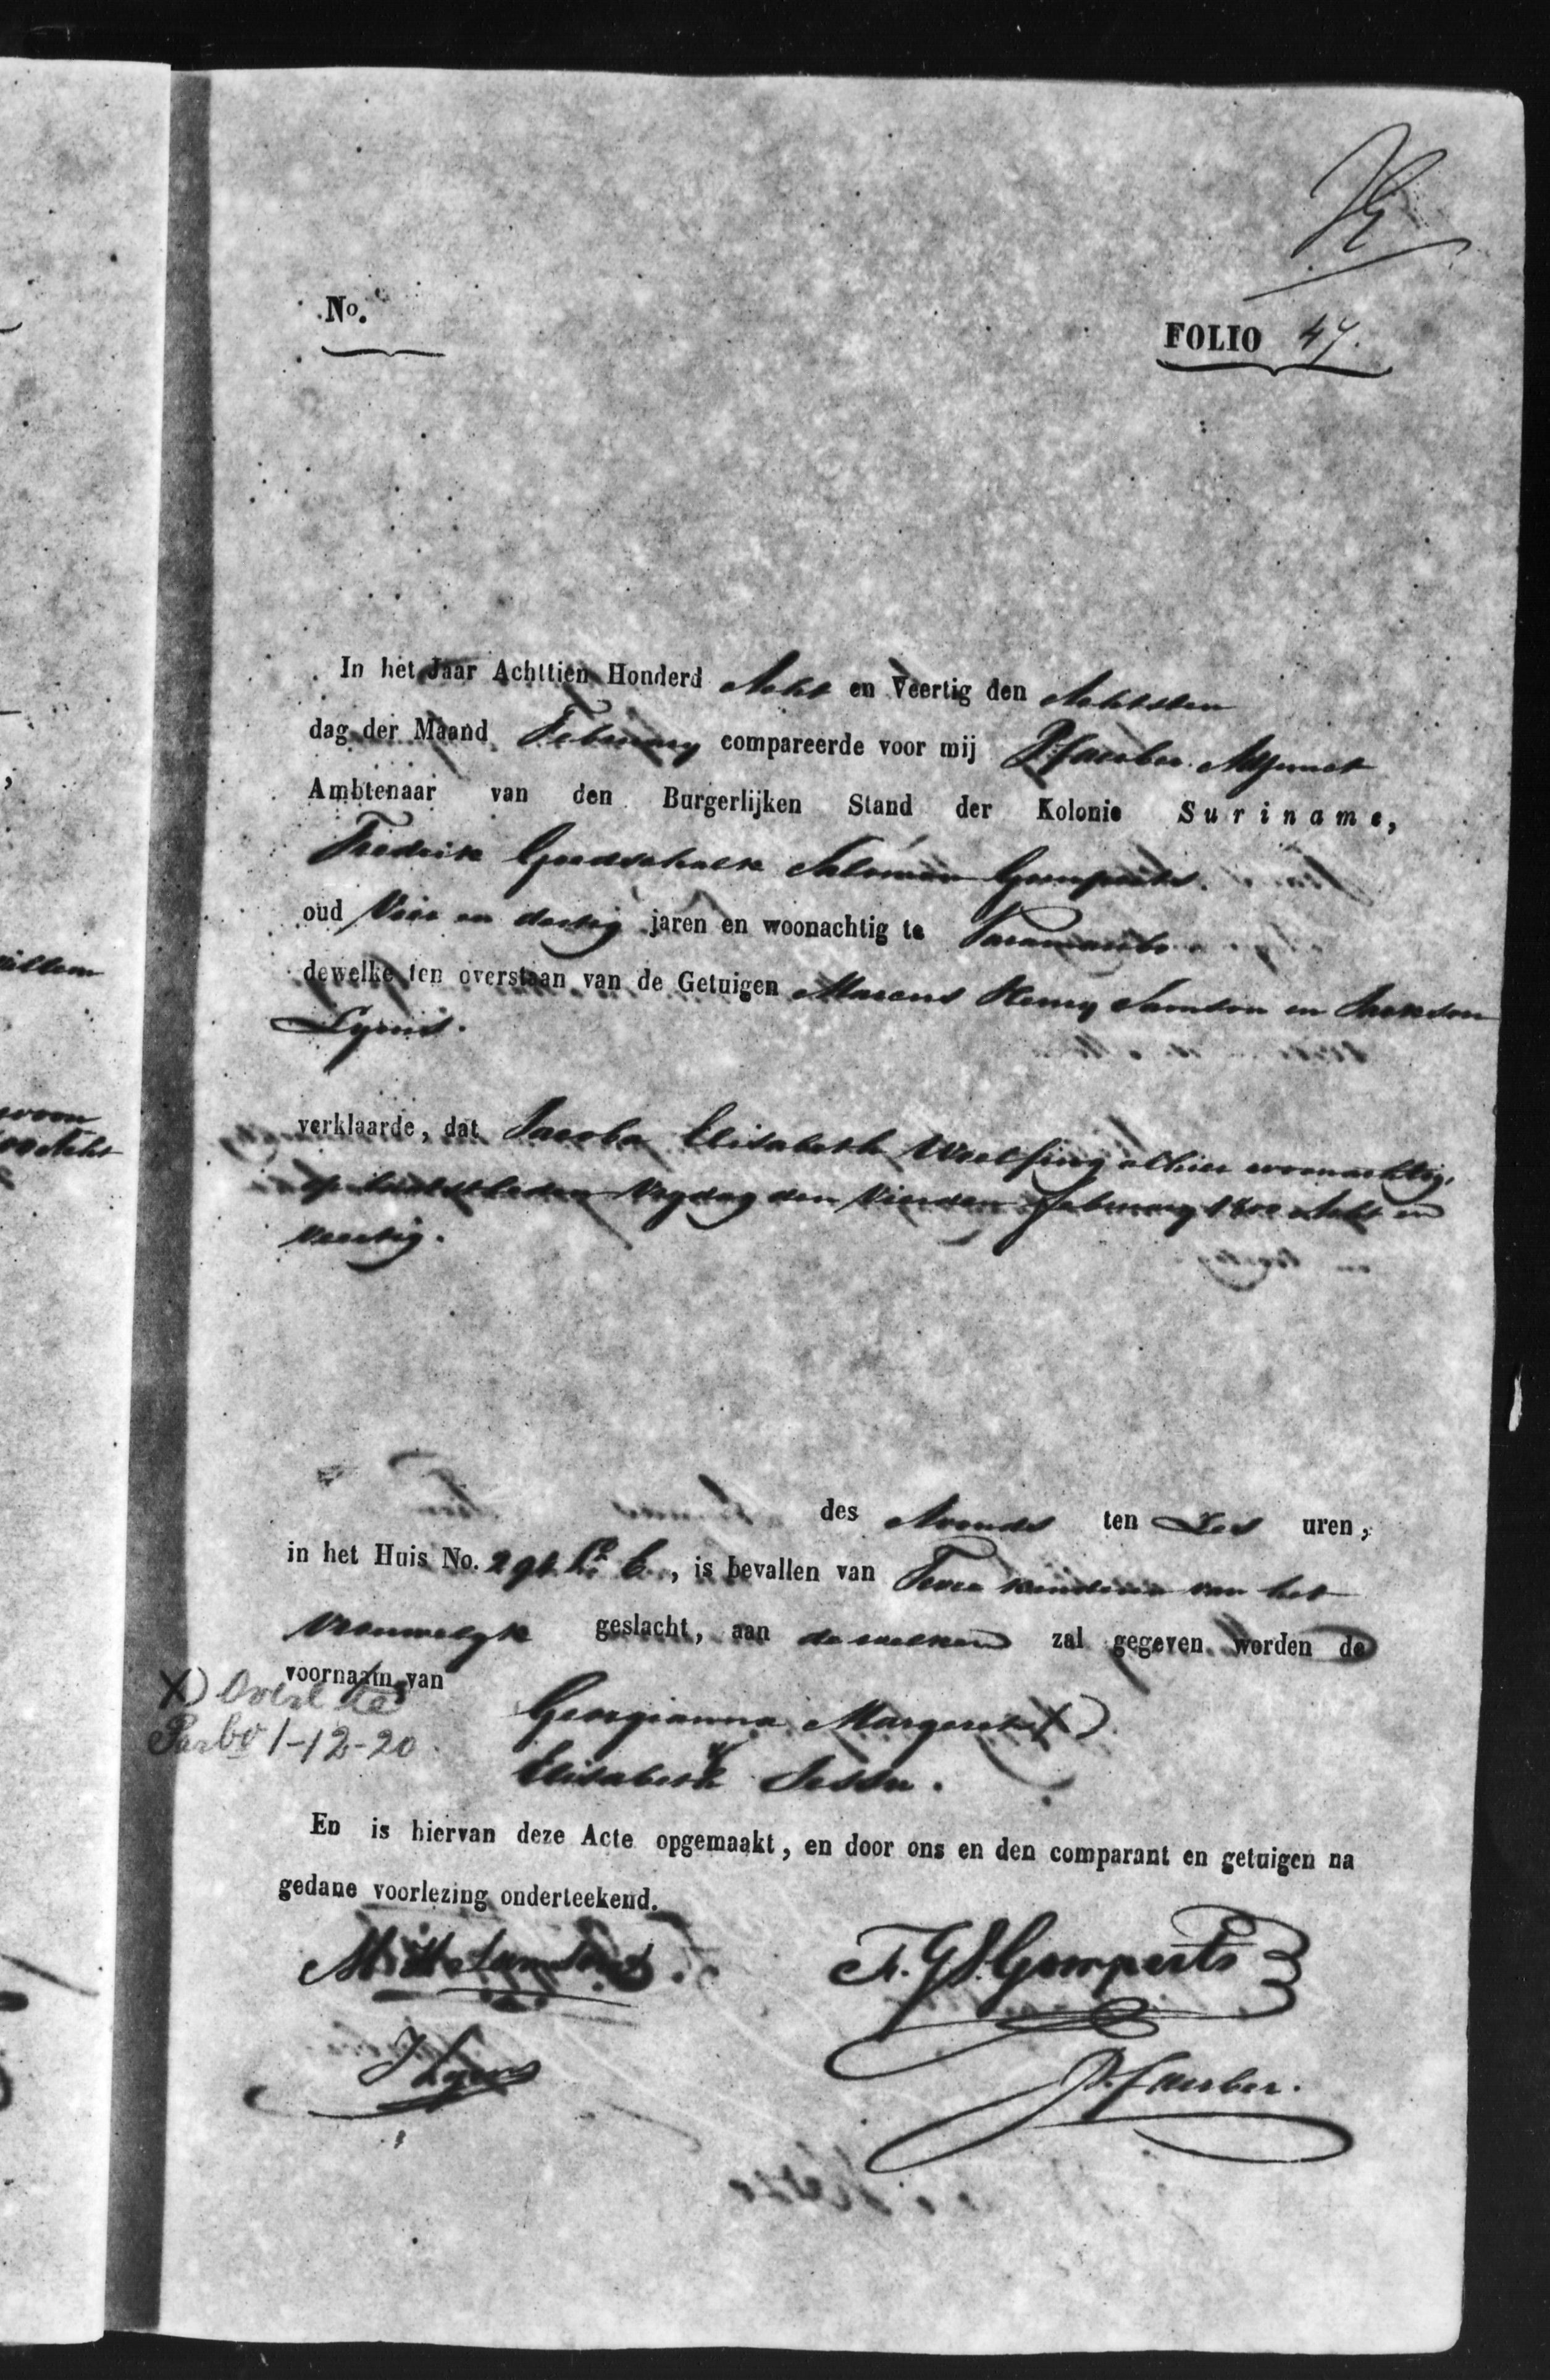 No.
FOLIO 47.
In het Jaar Achttien Honderd Acht en Veertig den Achtsten
dag der Maand February compareerde voor mij P. Faerber Adjunct
Ambtenaar van den Burgerlijken Stand der Kolonie Suriname,
Frederik Goedschalk Salomon Gomperts.
oud Vier en dertig jaren en woonachtig te Paramaribo
dewelke ten overstaan van de Getuigen Marcus Henry Samson en Jackson
Lyons.
verklaarde, dat Jacoba Elisabeth alhier woonachtig,
op laatstleden Vrydag den Vierden February 1800 Acht en
Veertig.
des Avonds ten Zes uren,
in het Huis No. 291. La. C., is bevallen van Twee kinderen van het
Vrouwelyk geslacht, aan dewelken zal gegeven worden de
voornaam van
Georgianna Margeret X)
Elisabeth Jessu.
X) Overl te
Parbo 1-12-20
En is hiervan deze Acte opgemaakt, en door ons en den comparant en getuigen na
gedane voorlezing onderteekend.
M. H. Samson
F. G. S. Gomperts
J Lyons
P. Faerber.